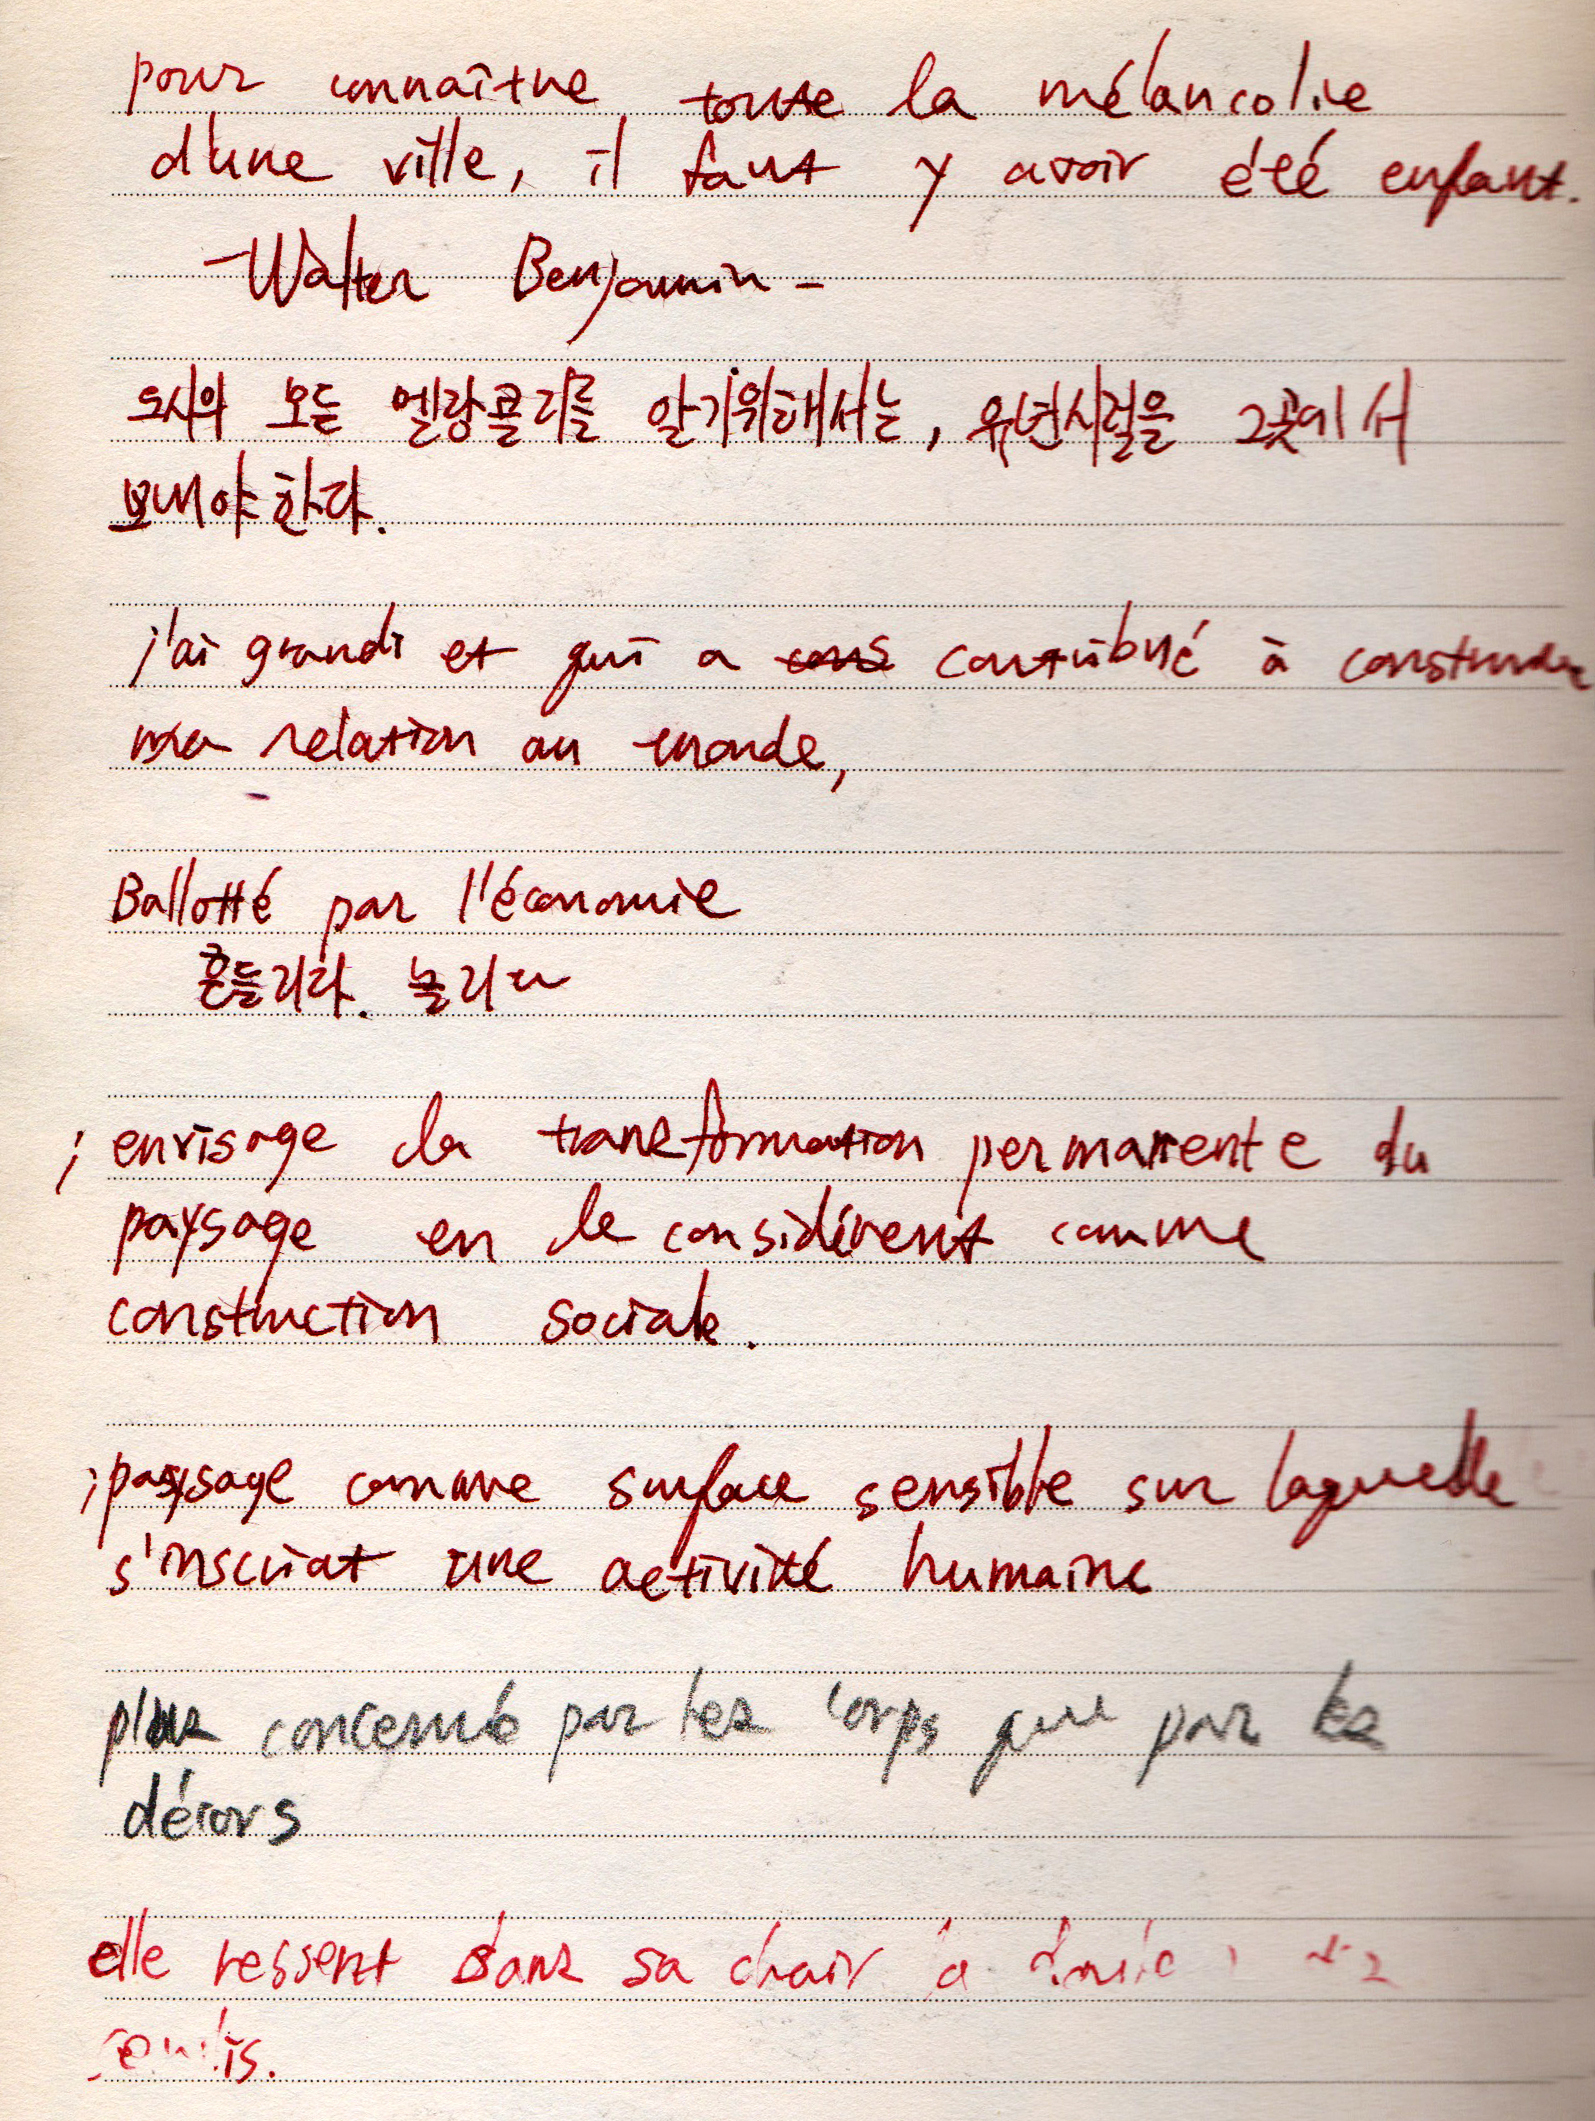 pour connaître toute la mélancolie
d'une ville, il faut y avoir été enfant.
-Walter Benjamin-
도시의 모든 멜랑콜리를 알기위해서는, 유년시절을 그곳에서
보내야한다.
j'ai grandi et qui a contribué à construire
ma relation au monde,
Ballotté par l'économie
흔들리다. 놀리다
; envisage la transformation permanente du
paysage en le considérent comme
construction sociale.
; paysage comme surface sensible sur laquelle
s'inscriat une activité humaine
plus concerné par les corps que par les
décors
elle ressent dans sa chair la